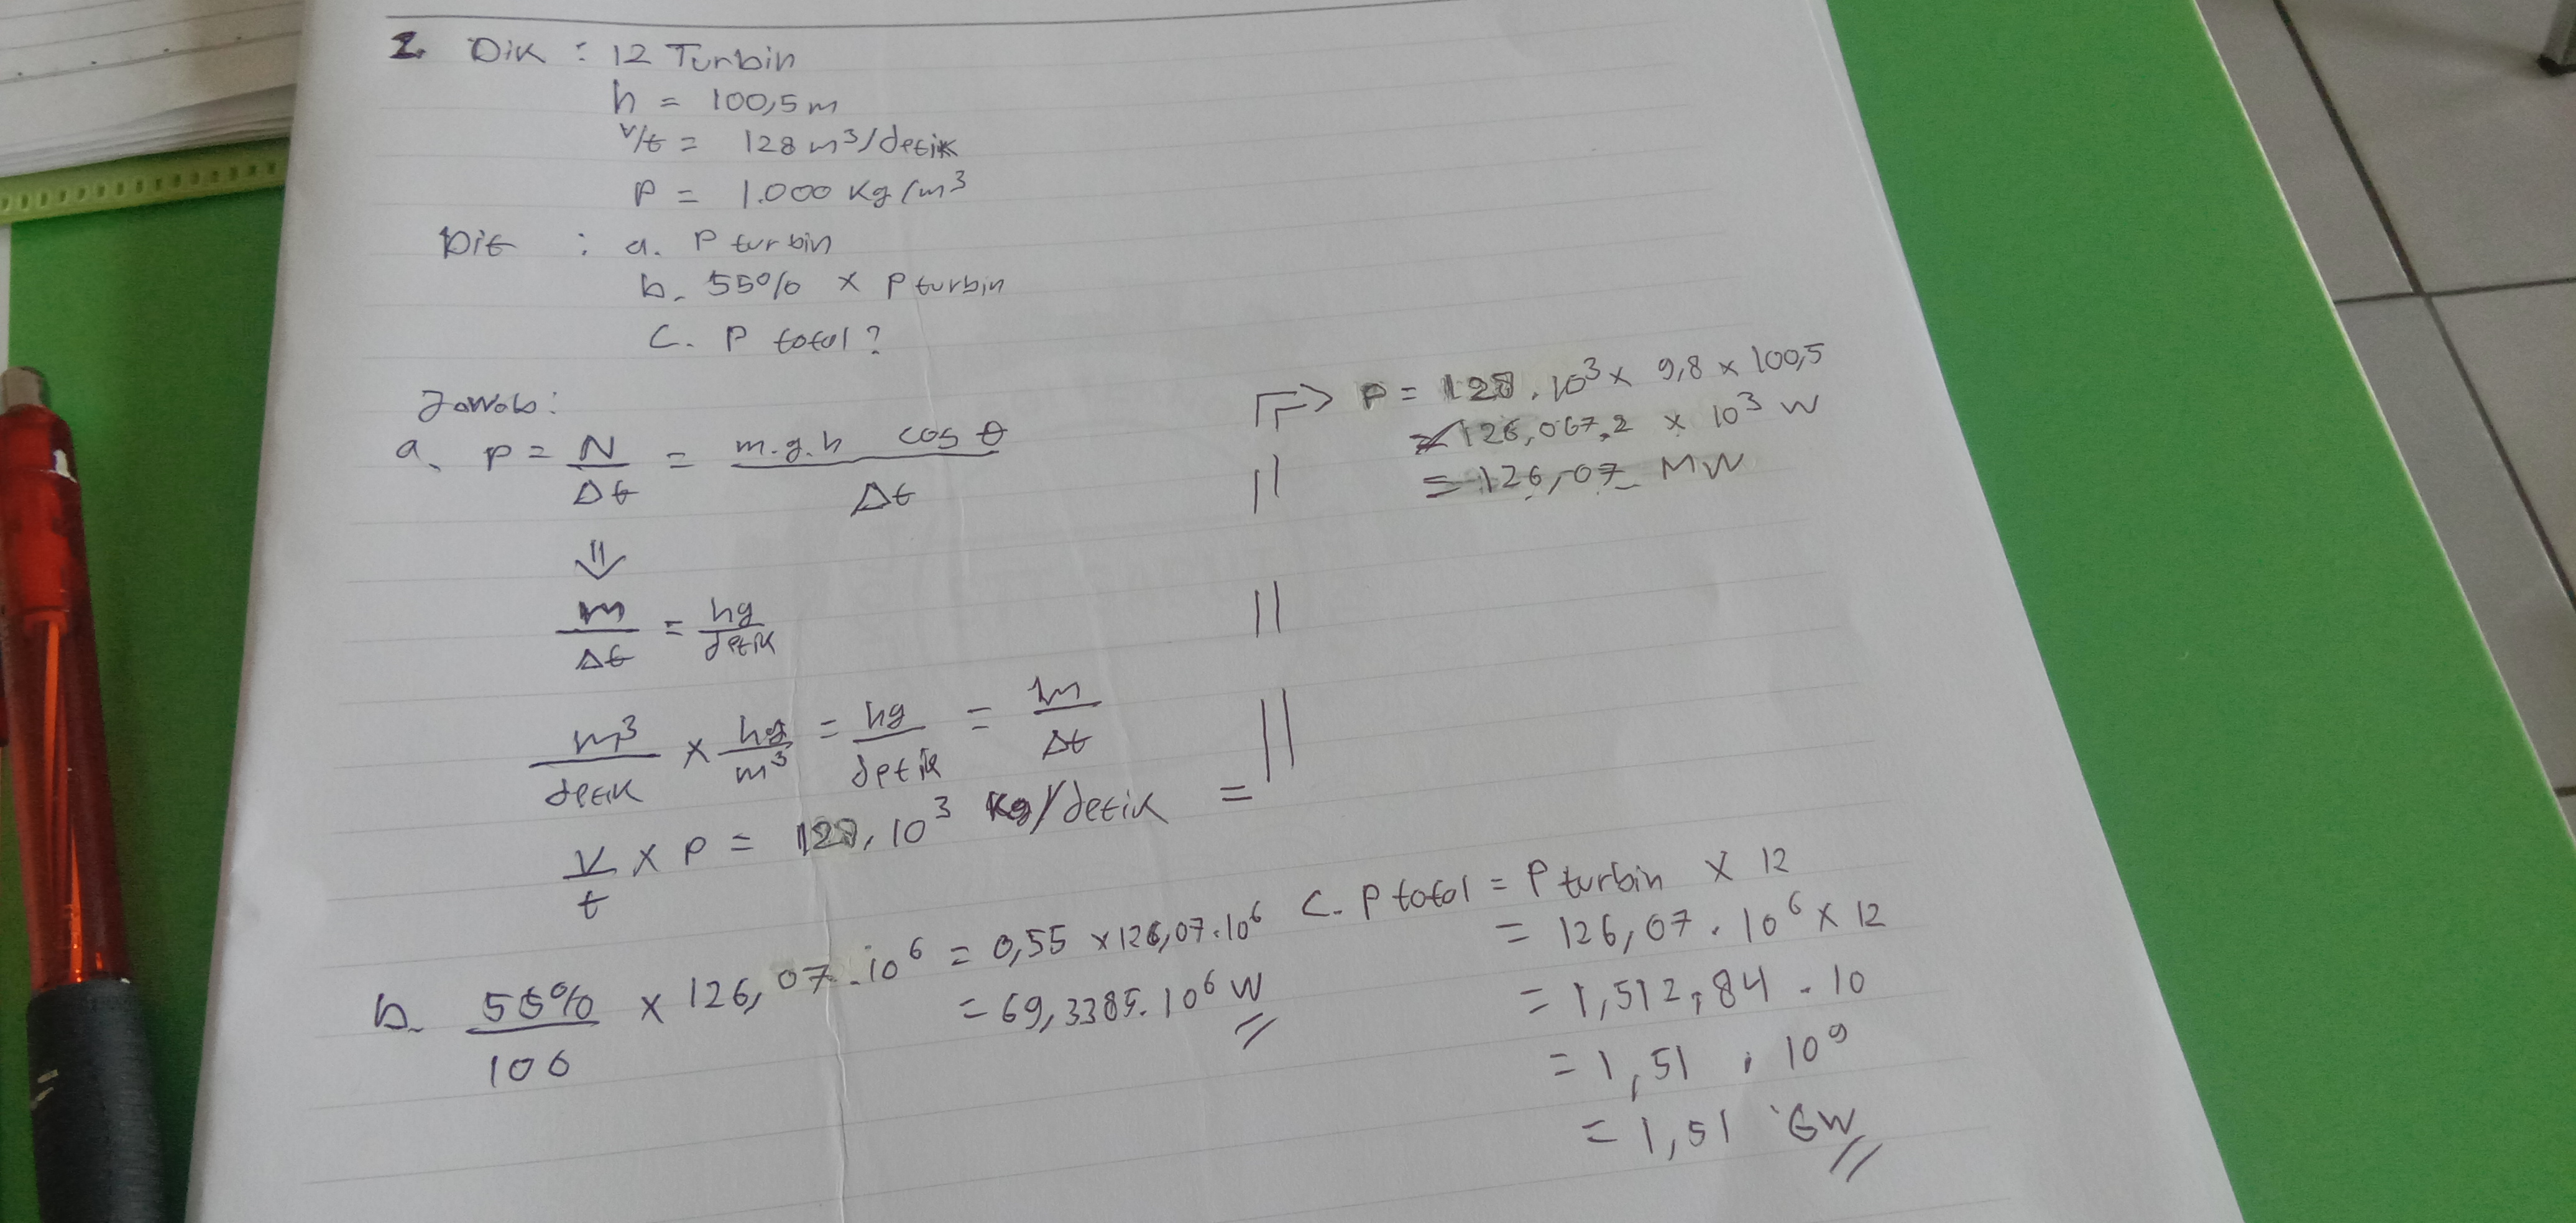 1. Dik : 12 Turbin
h = 100,5 m
V/t = 128 m³/detik
P = 1.000 Kg/m³
Dit : a. P turbin
b. 55% x P turbin
C. P total?
Jawab:
a. P = N/Δt = m.g.h cos θ/Δt
⇓
m/Δt = kg/detik
m³/detik x kg/m³ = kg/detik = m/Δt
V/t x P = 128.10³ Kg/detik =
=> P = 128.10³ x 9,8 x 100,5
= 126,067.2 x 10³ W
= 126,07 MW
b. 55%/100 x 126,07.10⁶ = 0,55 x 126,07.10⁶
= 69,3385.10⁶ W
C. P total = P turbin x 12
= 126,07.10⁶ x 12
= 1,512,84.10
= 1,51.10⁹
= 1,51 GW